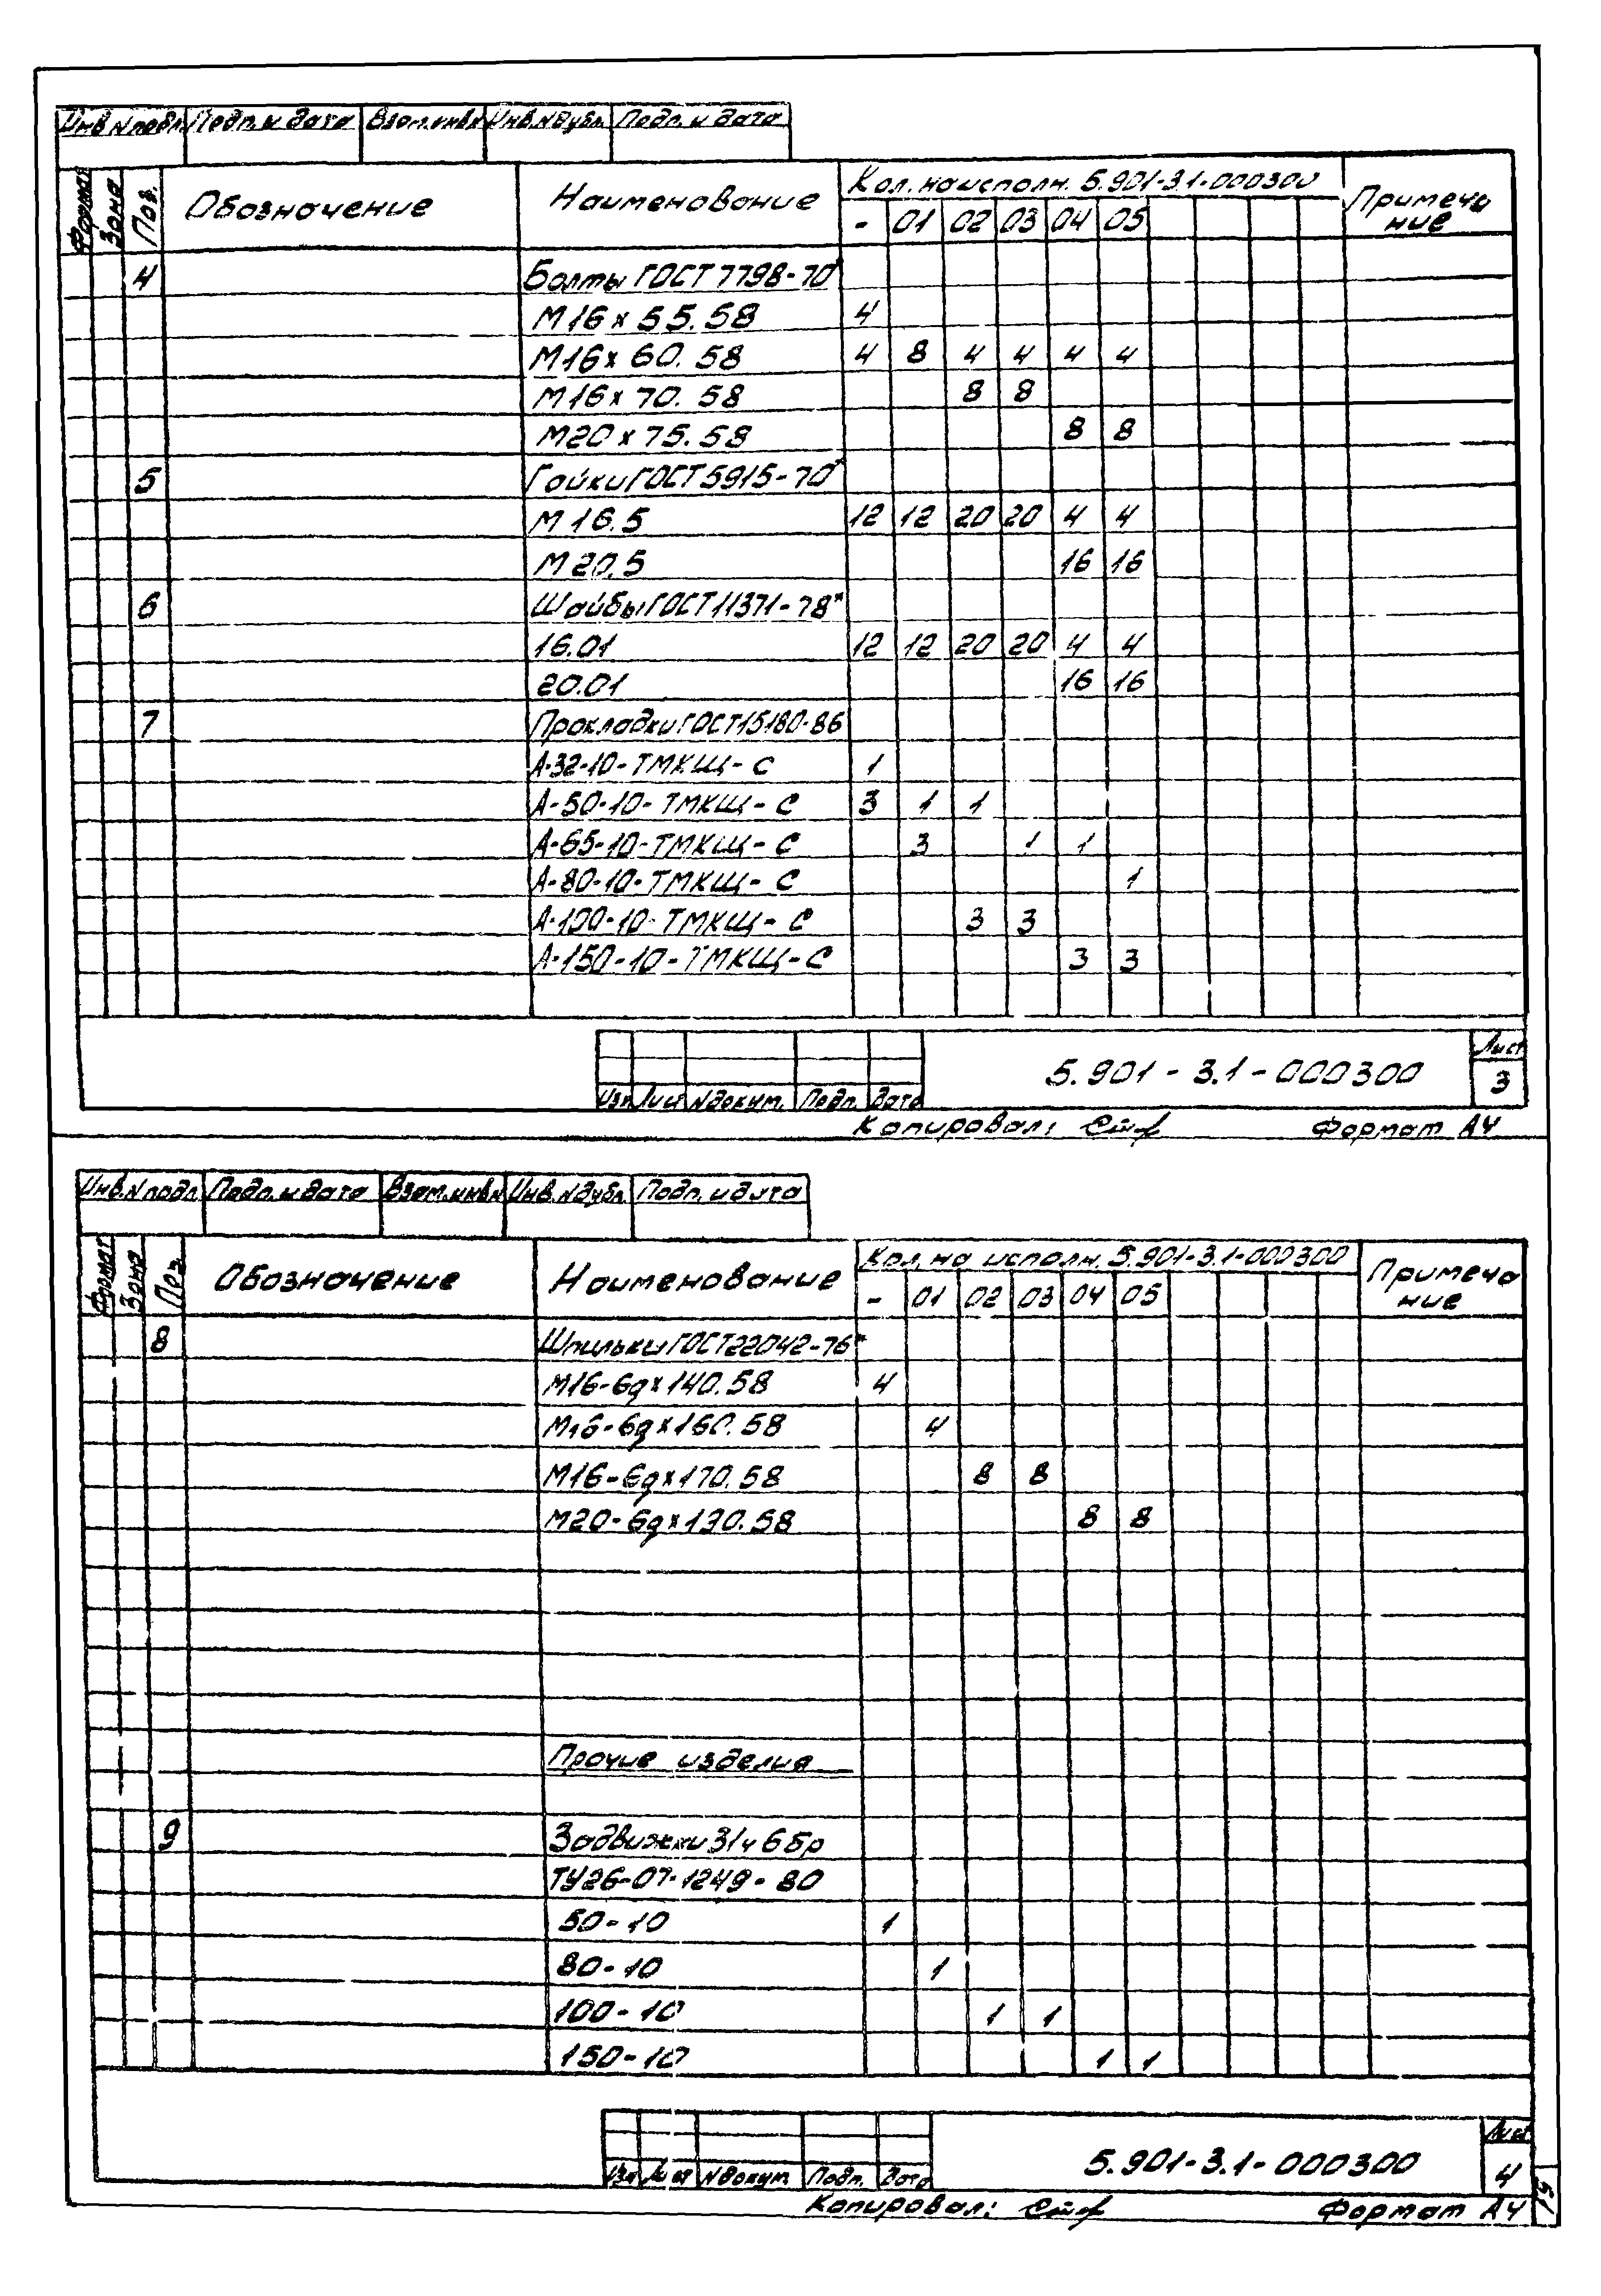 Инв.N подл. Подп. и дата Взам. инв.N Инв.N дубл. Подп. и дата
Формат Зона Поз. Обозначение Наименование Кол. на исполн. 5.901-3.1-000300 Примеча
- 01 02 03 04 05 ние
4 Болты ГОСТ 7798-70*
М16 х 55.58 4
М16 х 60.58 4 8 4 4 4 4
М16 х 70.58 8 8
М20 х 75.58 8 8
5 Гайки ГОСТ 5915-70*
М 16.5 12 12 20 20 4 4
М 20.5 16 16
6 Шайбы ГОСТ 11371-78*
16.01 12 12 20 20 4 4
20.01 16 16
7 Прокладки ГОСТ 15180-86
А-32-10-ТМКЩ-С 1
А-50-10-ТМКЩ-С 3 1 1
А-65-10-ТМКЩ-С 3 1 1
А-80-10-ТМКЩ-С 1
А-100-10-ТМКЩ-С 3 3
А-150-10-ТМКЩ-С 3 3
5.901-3.1-000300 Лист
3
Изм Лист N докум. Подп. Дата
Копировал: Формат А4
Инв.N подл. Подп. и дата Взам. инв.N Инв.N дубл. Подп. и дата
Формат Зона Поз. Обозначение Наименование Кол. на исполн. 5.901-3.1-000300 Примеча
- 01 02 03 04 05 ние
8 Шпильки ГОСТ 22042-76*
М16-6g х 140.58 4
М16-6g х 160.58 4
М16-6g х 170.58 8 8
М20-6g х 190.58 8 8
Прочие изделия
9 Задвижки 31ч 6 бр
ТУ26-07-1249-80
50-10 1
80-10 1
100-10 1 1
150-10 1 1
5.901-3.1-000300 Лист
4
Изм Лист N докум. Подп. Дата
Копировал: Формат А4